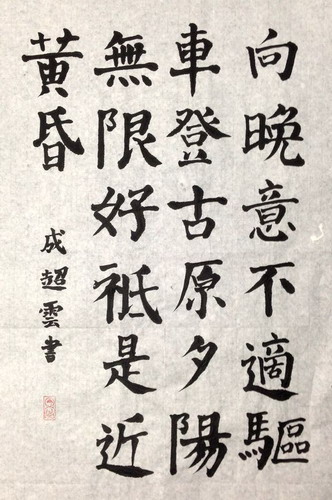 向晚意不適驅
車登古原夕陽
無限好祗是近
黃昏
成超雲書